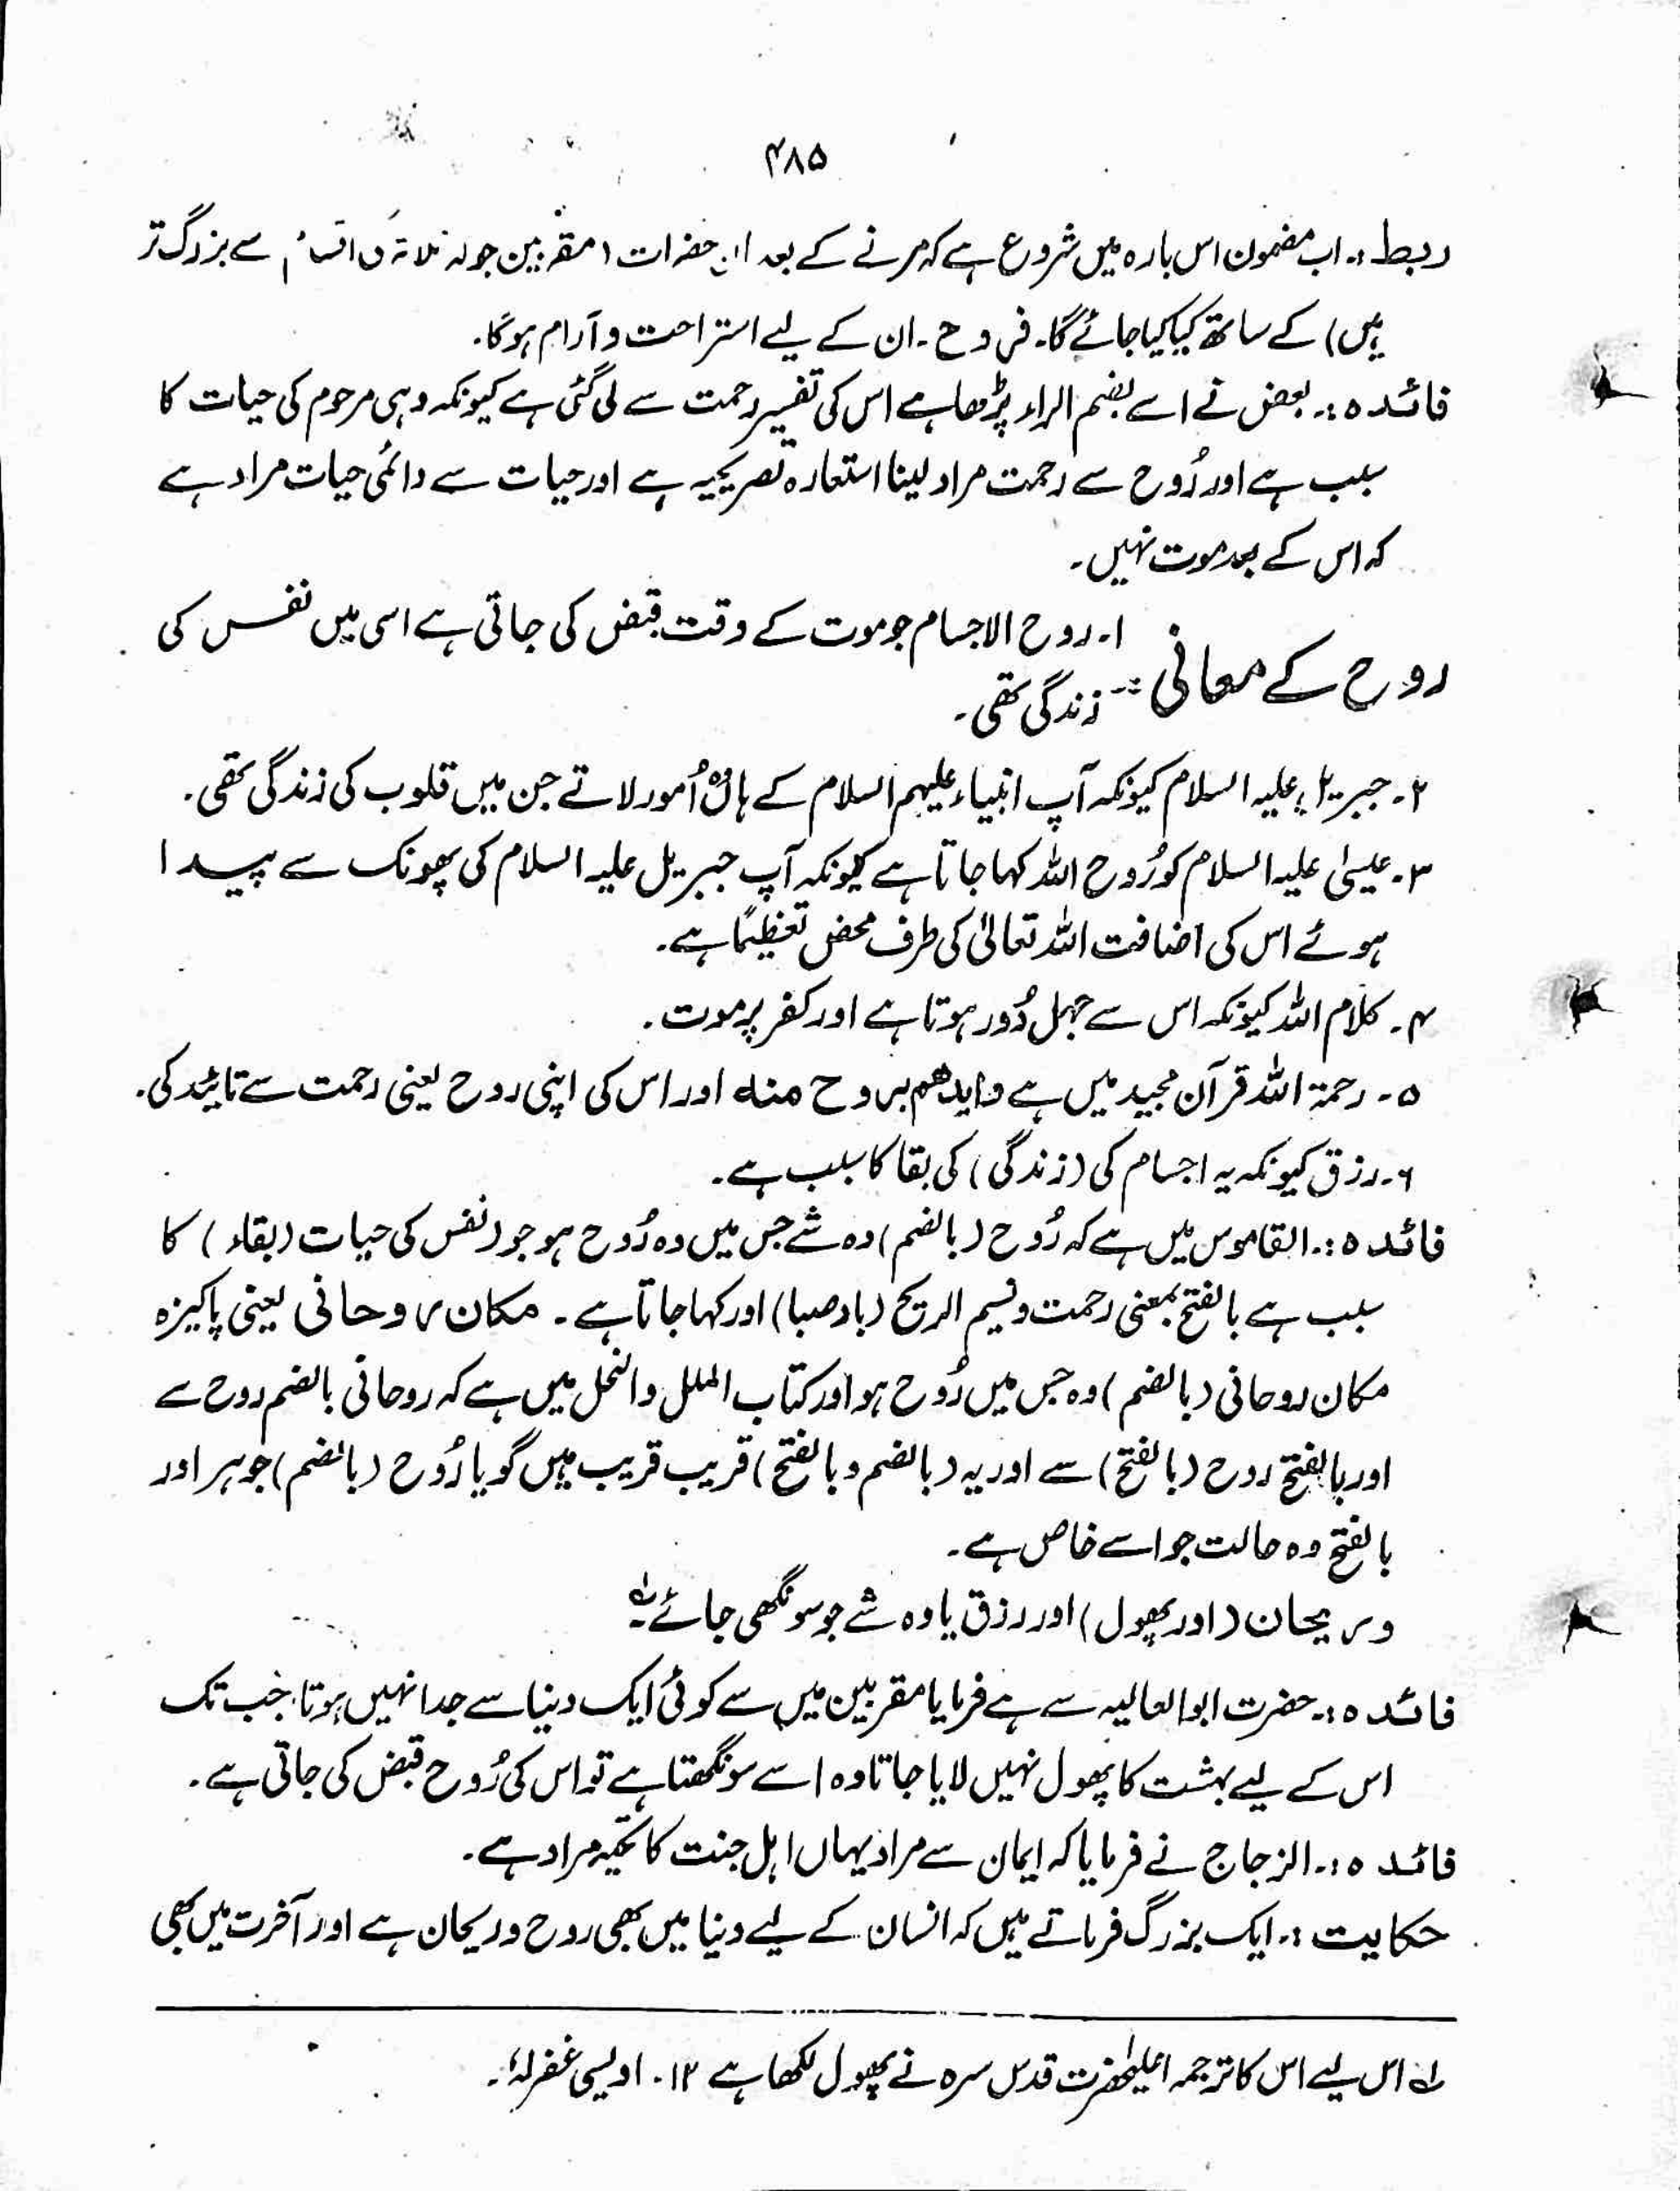 ۴۸۵
ربط :۔ اب مضمون اس بارہ میں شروع ہے کہ مرنے کے بعد ان حضرات (مقربین جو ثلاثہ اقسام سے بزرگ تر
ہیں) کے ساتھ کیا کیا جائے گا۔ فروح۔ ان کے لیے استراحت و آرام ہوگا۔
فائدہ :۔ بعض نے اسے بضم الراء پڑھا ہے اس کی تفسیر رحمت سے لی گئی ہے کیونکہ وہی مرحوم کی حیات کا
سبب ہے اور رُوح سے رحمت مراد لینا استعارہ تصریحیہ ہے اور حیات سے دائمی حیات مراد ہے
کہ اس کے بعد موت نہیں۔
روح کے معانی :۔ ۱۔ روح الاجسام جو موت کے وقت قبض کی جاتی ہے اسی میں نفس کی
زندگی تھی۔
۲۔ جبریل علیہ السلام کیونکہ آپ انبیاء علیہم السلام کے ہاں وہ اُمور لاتے جن میں قلوب کی زندگی تھی۔
۳۔ عیسیٰ علیہ السلام کو رُوح اللہ کہا جاتا ہے کیونکہ آپ جبریل علیہ السلام کی پھونک سے پیدا
ہوئے اس کی اضافت اللہ تعالیٰ کی طرف محض تعظیماً ہے۔
۴۔ کلام اللہ کیونکہ اس سے جہل دُور ہوتا ہے اور کفر پر موت۔
۵۔ رحمۃ اللہ قرآن مجید میں ہے وایدھم بروح منہ اور اس کی اپنی روح یعنی رحمت سے تائید کی۔
۶۔ رزق کیونکہ یہ اجسام کی (زندگی) کی بقا کا سبب ہے۔
فائدہ :۔ القاموس میں ہے کہ رُوح (بالضم) وہ شے جس میں وہ رُوح ہو جو (نفس کی حیات (بقاء) کا
سبب ہے بالفتح بمعنی رحمت و نسیم الریح (باد صبا) اور کہا جاتا ہے۔ مکان روحانی یعنی پاکیزہ
مکان روحانی (بالضم) وہ جس میں رُوح ہو اور کتاب الملل والنحل میں ہے کہ روحانی بالضم روح سے
اور بالفتح روح (بالفتح) سے اور یہ (بالضم و بالفتح) قریب قریب ہیں گویا رُوح (بالضم) جوہر اور
بالفتح وہ حالت جو اسے خاص ہے۔
وریحان (اور پھول) اور رزق یا وہ شے جو سونگھی جائے ؎۱
فائدہ :۔ حضرت ابو العالیہ سے ہے فرمایا مقربین میں سے کوئی ایک دنیا سے جدا نہیں ہوتا جب تک
اس کے لیے بہشت کا پھول نہیں لایا جاتا وہ اسے سونگھتا ہے تو اس کی رُوح قبض کی جاتی ہے۔
فائدہ :۔ الزجاج نے فرمایا کہ ایمان سے مراد یہاں اہل جنت کا تکیہ مراد ہے۔
حکایت :۔ ایک بزرگ فرماتے ہیں کہ انسان کے لیے دنیا میں بھی روح و ریحان ہے اور آخرت میں بھی
؎۱ اس لیے اس کا ترجمہ اعلیٰحضرت قدس سرہ نے پھول لکھا ہے ۱۲۔ اویسی غفرلہٗ۔